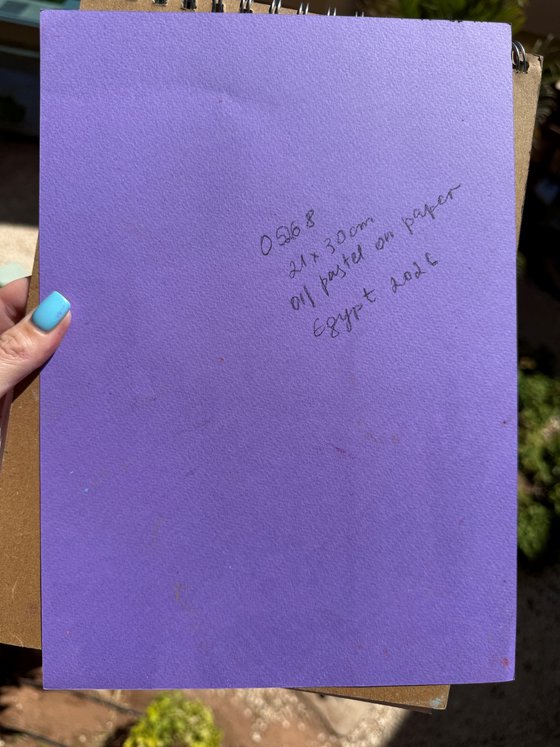 05268
21 x 30 cm
oil pastel on paper
Egypt 2026